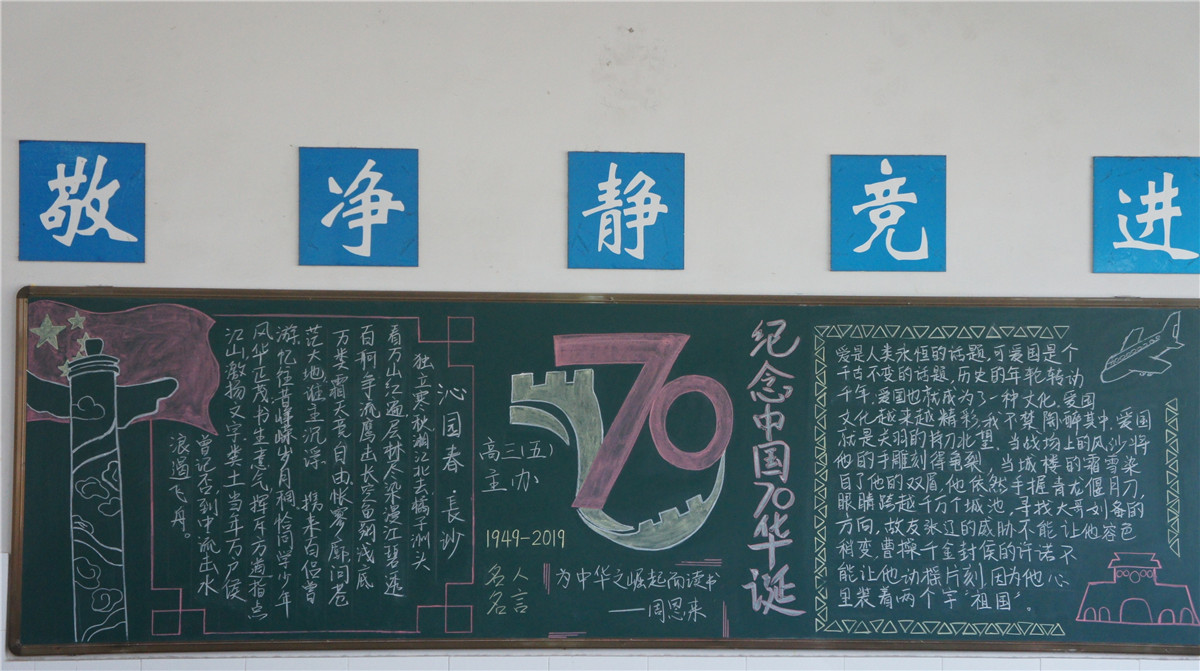 敬净静竞进
沁园春 长沙
独立寒秋湘江北去橘子洲头
看万山红遍层林尽染漫江碧透
百舸争流鹰击长空鱼翔浅底
万类霜天竞自由怅寥廓问苍
茫大地谁主沉浮 携来百侣曾
游忆往昔峥嵘岁月稠恰同学少年
风华正茂书生意气挥斥方遒指点
江山激扬文字粪土当年万户侯
曾记否到中流击水
浪遏飞舟。
70
高三(五)
主办
1949-2019
名人
名言
为中华之崛起而读书
——周恩来
纪念中国70华诞
爱是人类永恒的话题,可爱国是个
千古不变的话题,历史的年轮转动
千年,爱国也就成为了一种文化,爱国
文化越来越精彩,我不禁陶醉其中,爱国
就是关羽的北望,当战场上的风沙将
他的手雕刻得龟裂,当城楼的霜雪染
白了他的双眉,他依然手握青龙偃月刀,
眼睛跨越千万个城池,寻找大哥刘备的
方向,故友张辽的威胁不能让他容色
稍变,曹操千金封侯的许诺不
能让他动摇片刻,因为他心
里装着两个字“祖国”。